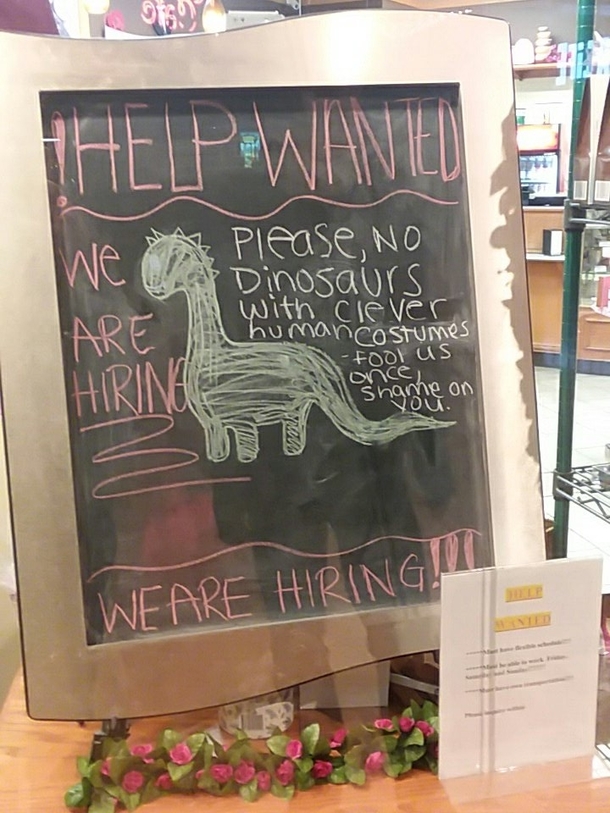 !HELP WANTED
WE
ARE
HIRING
Please, NO
Dinosaurs
with clever
human costumes
-fool us
once,
shame on
you.
WE ARE HIRING!!!
HELP
WANTED
Must have flexible schedule!!!
Must be able to work Friday,
Saturday and Sunday!!!!!!!
Must have own transportation!!!
Please inquire within